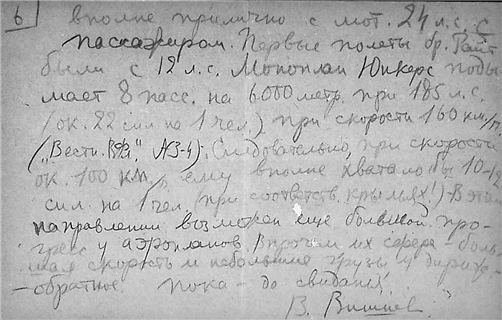 6
вполне прилично с мот. 24 л.с. с
пассажиром. Первые полеты бр. Райт
были с 12 л.с. Моноплан Юнкерс поды
мает 8 пасс. на 6000 метр. при 185 л.с.
(ок. 22 сил на 1 чел.) при скорости 160 км/
("Вестн. В.Ф." №3-4). Следовательно, при скорости
ок. 100 км/ ему вполне хватало бы 10-
сил на 1 чел. (при соответств. крыльях!) В этом
направлении возможен еще большой про-
гресс у аэропланов. Впрочем их сфера - боль
шая скорость и небольшие грузы, у дириж.
- обратное. Пока - до свиданья!
В.